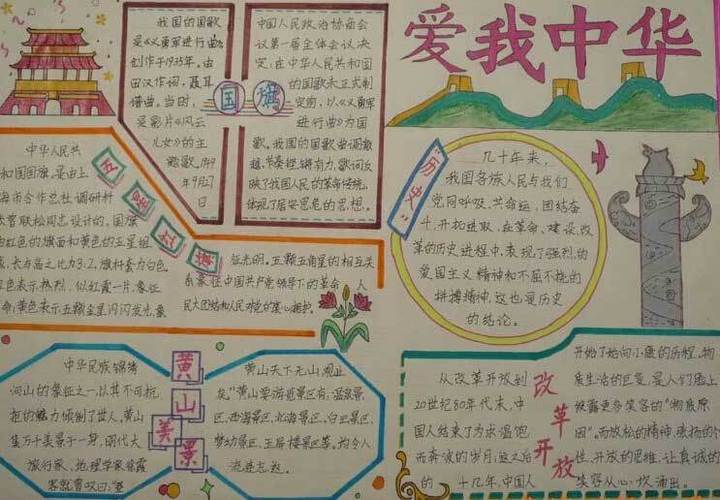 爱我中华
我国的国歌
是《义勇军进行曲》
创作于1935年。由
田汉作词，聂耳
谱曲。当时，
是影片《风云
儿女》的主
题歌，1949
年9月27
日
国
旗
中国人民政治协商会
议第一届全体会议决
定：在中华人民共和国
的国歌未正式制
定前，以《义勇军
进行曲》为国
歌。我国的国歌曲调激
越，节奏铿锵有力，歌词反
映了我国人民的革命传统，
体现了居安思危的思想。
中华人民共
和国国旗，是由上
海市合作总社调研科
联松同志设计的，国旗
红色的旗面和黄色的五星组
，长与高之比为3:2，旗杆套为白色，
色表示热烈，似红霞一片，象征
命；黄色表示五颗金星闪闪发光，象
五
星
红
旗
征光明，五颗五角星的相互关
系象征中国共产党领导下的革命人
民大团结和人民对党的衷心拥护。
"历史"
几十年来，
我国各族人民与我们
党同呼吸、共命运，团结奋
斗，开拓进取，在革命、建设、改
革的历史进程中，表现了强烈的
爱国主义精神和不屈不挠的
拼搏精神，这也是历史
的结论。
黄
山
美
景
中华民族锦绣
河山的象征之一，以其不可抗
拒的魅力倾倒了世人。黄山
集万千美景于一身，明代大
旅行家、地理学家徐霞
客就曾叹曰：“登
黄山天下无山，观止
矣。”黄山要游览景区有：温泉景
区、西海景区、北海景区、白云景区、
梦幻景区、玉屏楼景区等。均令人
流连忘返。
改
革
开
放
从改革开放到
20世纪80年代末，中
国人结束了为求温饱
而奔波的岁月；这之后
的十几年，中国人
开始了始向小康的历程。物
质生活的巨变，是人们脸上
披露更多笑容的“物质原
因”。而放松的精神、张扬的个
性、开放的思维，让真诚的
笑容从心坎涌出。